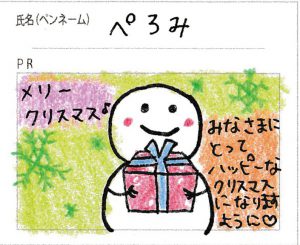 氏名(ペンネーム)
ぺろみ
PR
メリー
クリスマス♪
みなさまに
とって
ハッピーな
クリスマス
になります
ように♡